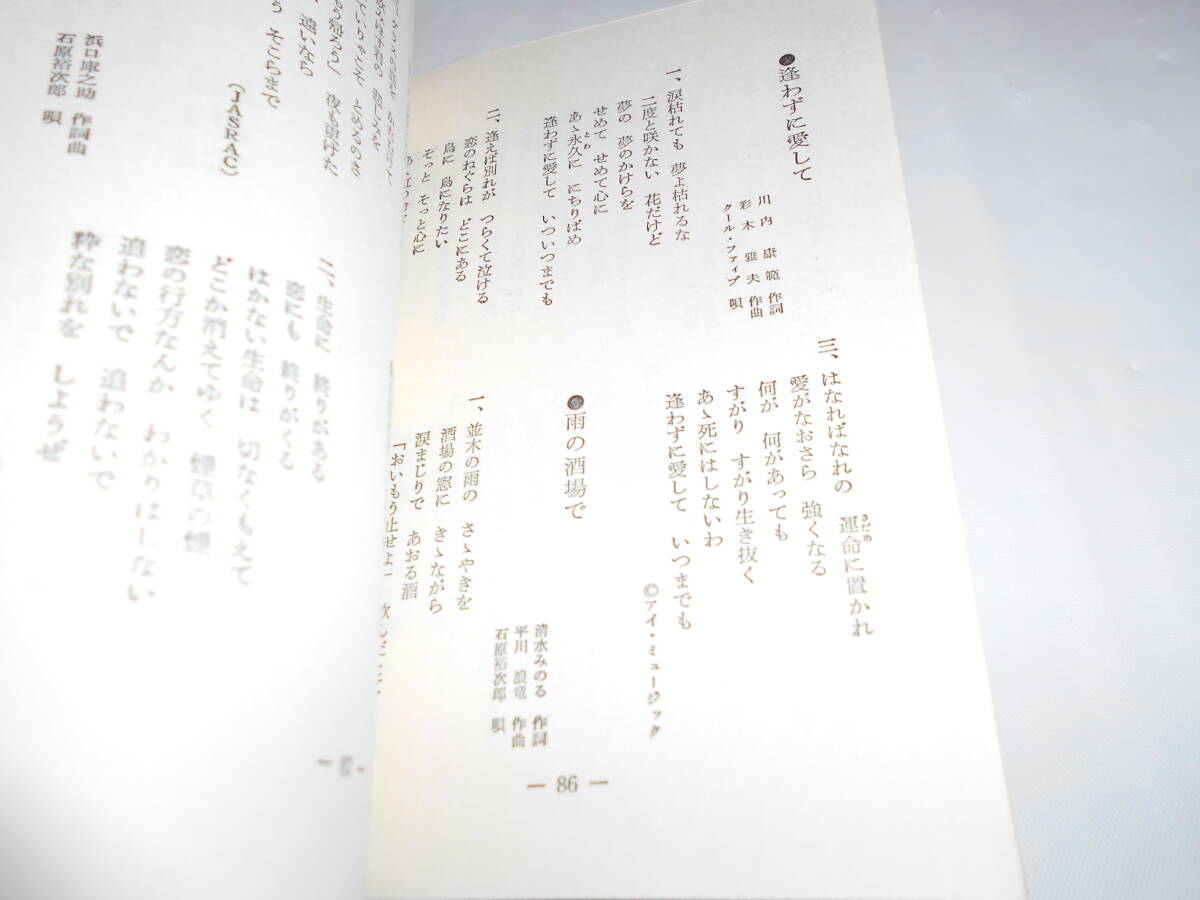 ●逢わずに愛して
川内康範 作詞
彩木雅夫 作曲
クール・ファイブ 唄
一、涙枯れても 夢よ枯れるな
二度と咲かない 花だけど
夢の 夢のかけらを
せめて せめて心に
あゝ永久に にちりばめ
とわ
逢わずに愛して いついつまでも
二、逢えば別れが つらくて泣ける
恋のねぐらは どこにある
鳥に 鳥になりたい
そっと そっと心に
三、はなればなれの 運命に置かれ
さだめ
愛がなおさら 強くなる
何が 何があっても
すがり すがり生き抜く
あゝ死にはしないわ
逢わずに愛して いつまでも
©アイ・ミュージック
●雨の酒場で
清水みのる 作詞
平川浪竜 作曲
石原裕次郎 唄
一、並木の雨の さゝやきを
酒場の窓に きゝながら
涙まじりで あおる酒
「おいもう止せよ」 飲んだ
― 86 ―
もう帰ろう」 夜も更けた
遠いなら
そこらまで
(JASRAC)
浜口庫之助 作詞曲
石原裕次郎 唄
二、生命に 終りがある
恋にも 終りがくる
はかない生命は 切なくもえて
どこか消えてゆく 煙草の煙
恋の行方なんか わかりはしない
追わないで 追わないで
粋な別れを しようぜ